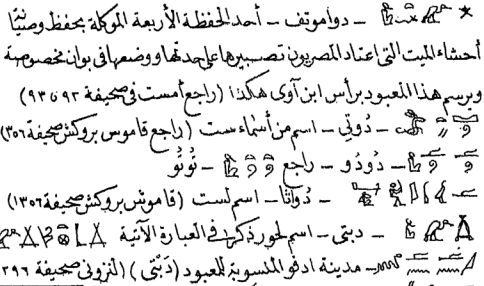 دواموتف – أحد الحفظة الأربعة الموكلة بحفظ وصيانة
أحشاء الميت التى اعتاد المصريون تصبيرها على حدتها ووضعها فى بوان مخصوصة
ويرسم هذا المعبود برأس ابن آوى هكذا (راجع أمست فى صحيفة ٩٢ و ٩٣)
– دُوتِي – اسم من أسماء ست (راجع قاموس بروكش صحيفة ١٣٥٦)
– دُودُو – راجع – تُوتُو
– دُواثا – اسم لست (قاموس بروكش صحيفة ١٣٥٦)
– دبتى – اسم لحور ذكر فى العبارة الآتية
– مدينة ادفو المنسوبة للمعبود (دَبْتى) (لنزونى صحيفة ٢٩٦